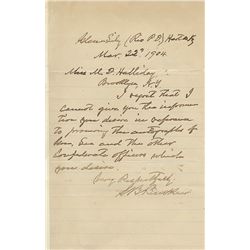 Glen Lily, (Rio P.O.) Hart Co. Ky
Mar. 22d 1904.
Miss M. D. Halliday
Brooklyn, N.Y.
I regret that I
cannot give you the informa-
tion you desire in reference
to procuring the autographs of
Gen. Lee and the other
Confederate officers which
you desire.
Very Respectfully
S. B. Buckner